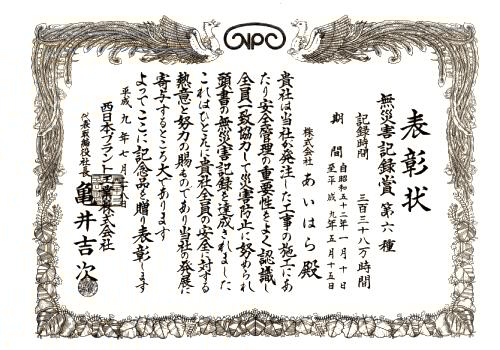 NPC
表彰状
無災害記録賞 第六種
記録時間 三百三十八万時間
期間 自昭和五十二年一月十日
至平成九年五月十五日
株式会社 あいはら殿
貴社は当社が発注した工事の施工にあ
たり安全管理の重要性をよく認識し
全員一致協力して災害防止に努められ
頭書の無災害記録を達成されました
これはひとえに貴社全員の安全に対する
熱意と努力の賜ものであり当社の発展に
寄与するところ大であります
よってここに記念品を贈り表彰します
平成九年七月
西日本プラント工業株式会社
代表取締役社長 亀井吉次